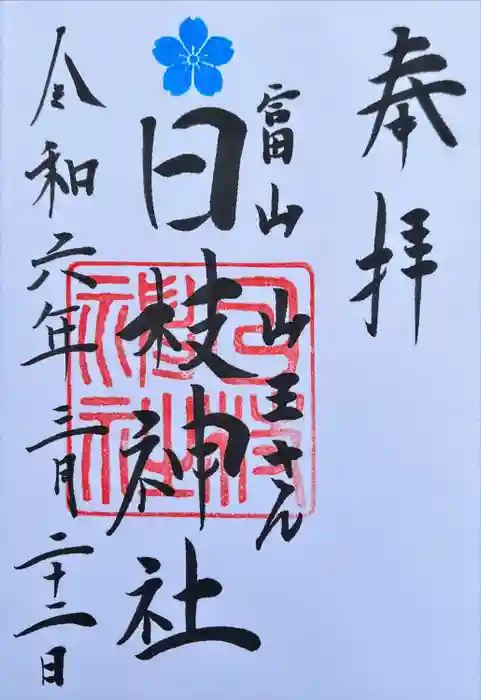 奉拝
富山 山王さん
日枝神社
令和六年三月二十二日